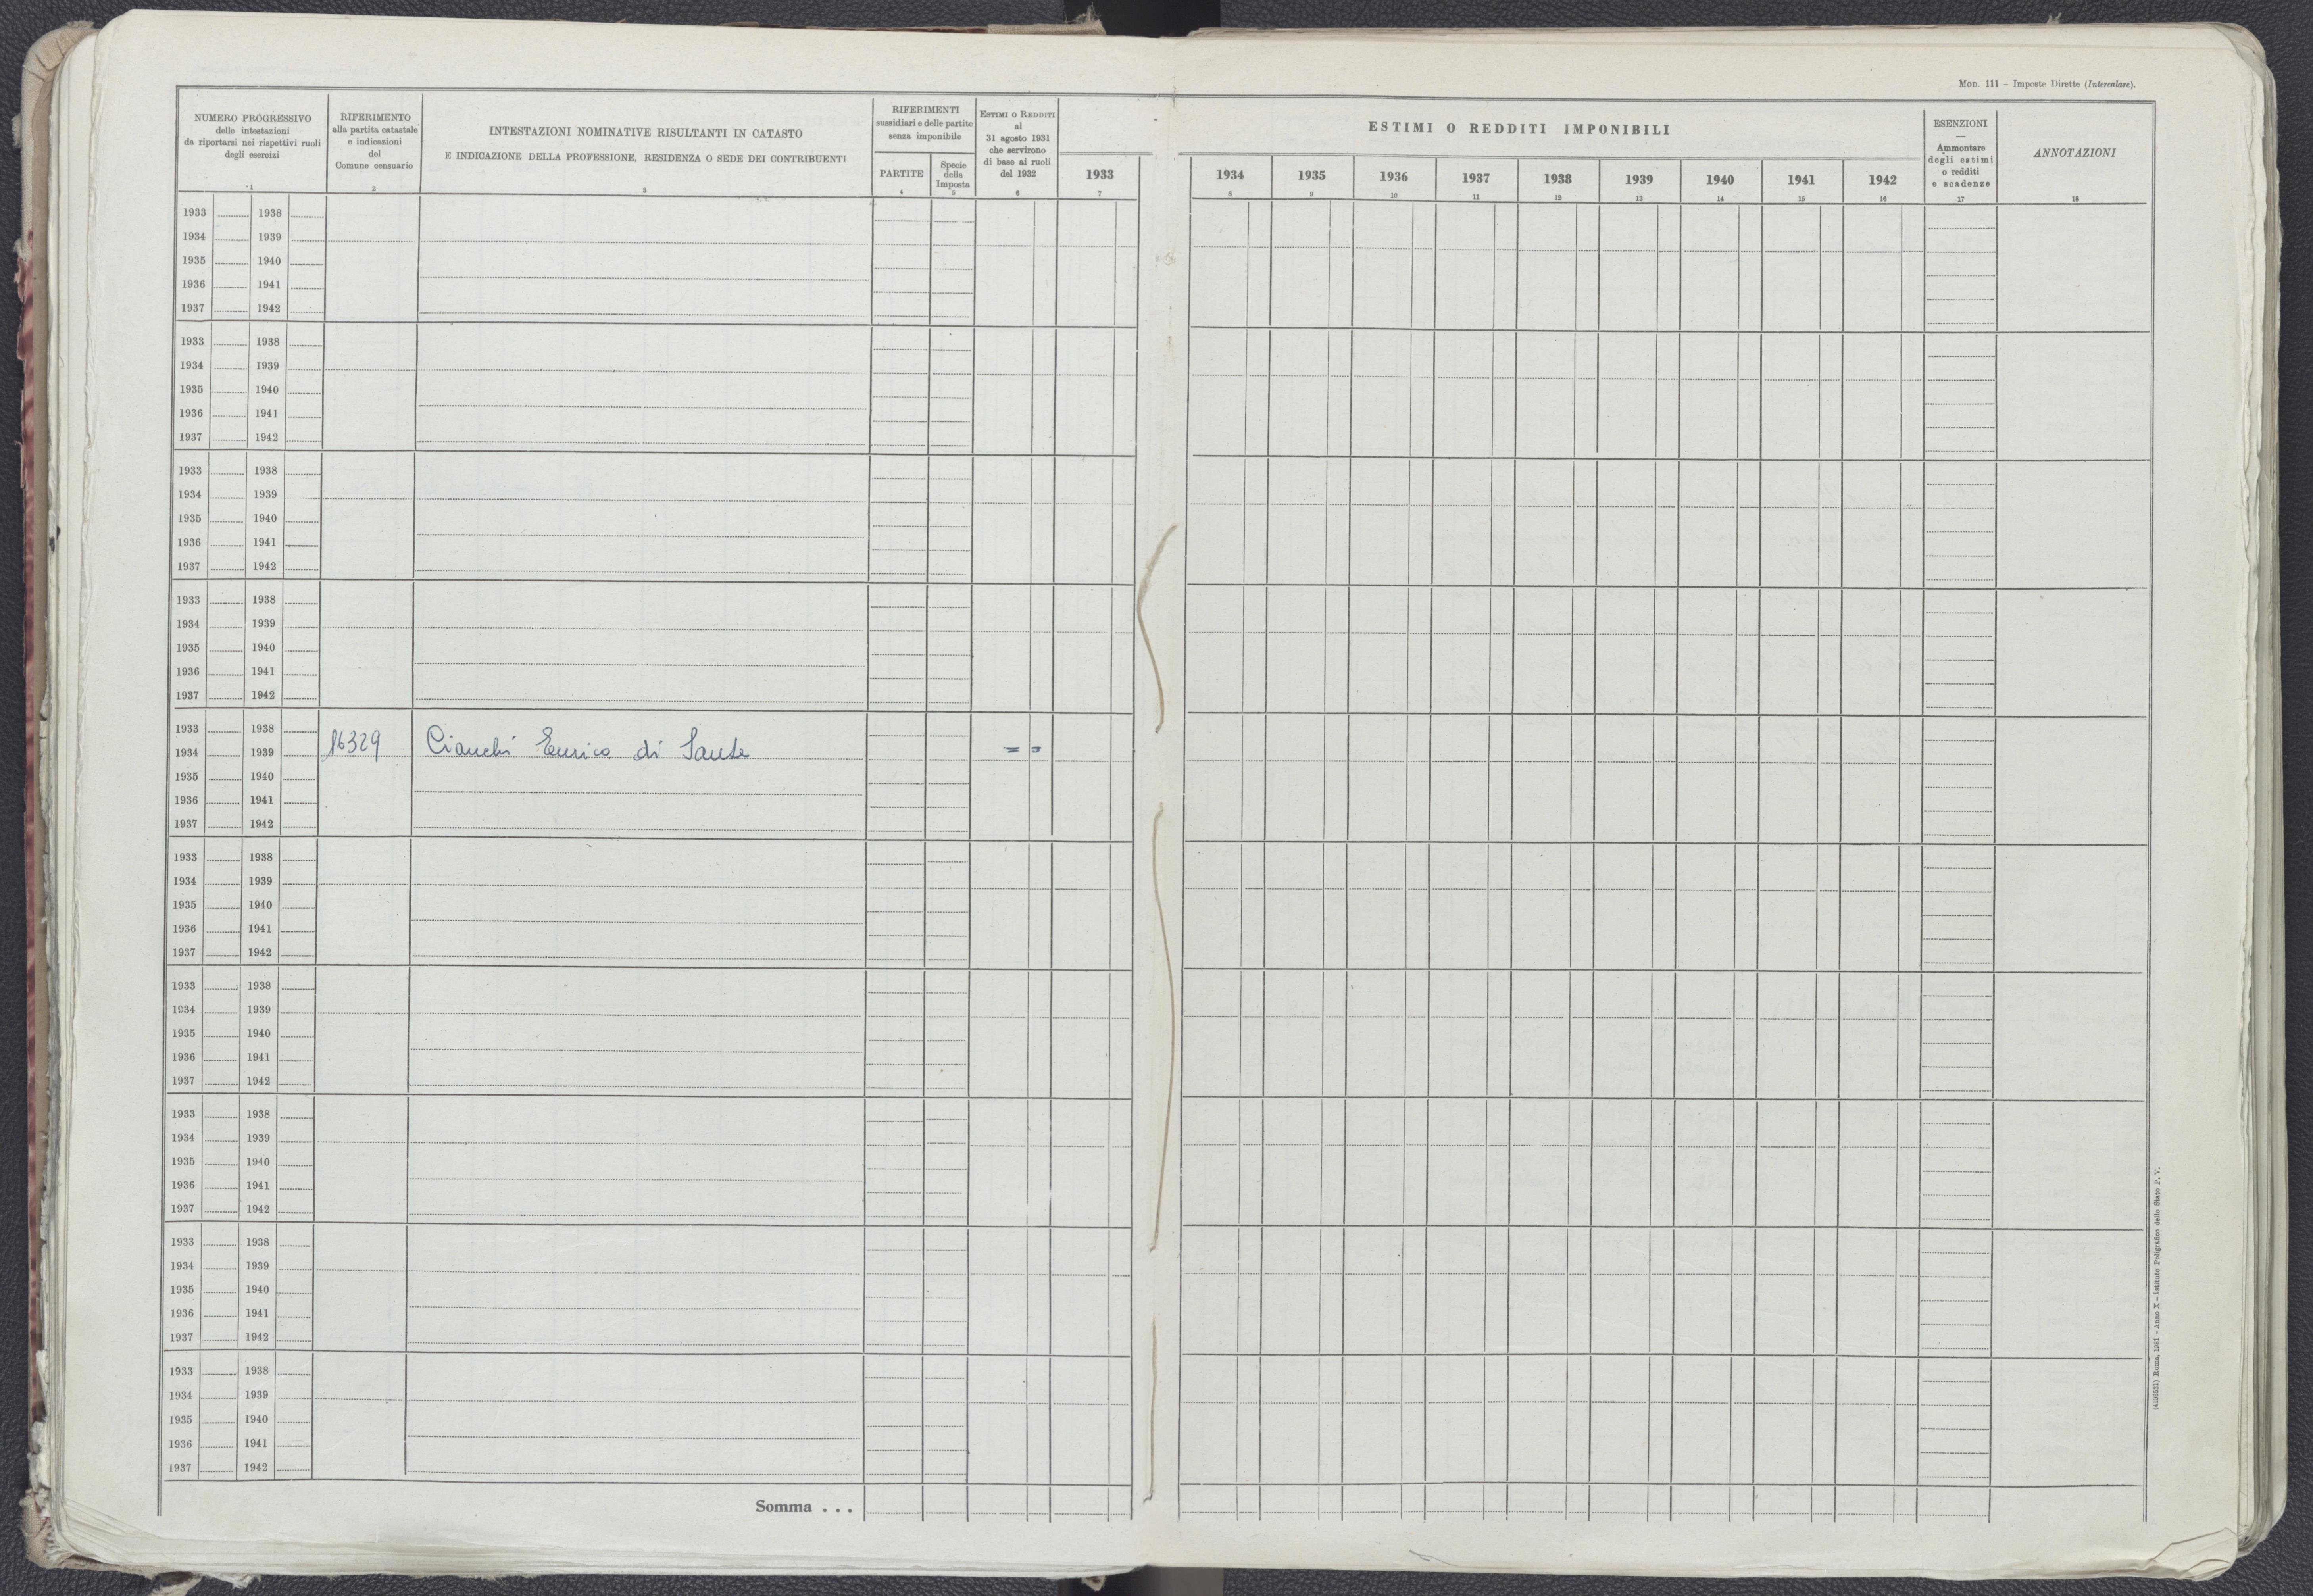 Mod. 111 - Imposte Dirette (Intercalare).
NUMERO PROGRESSIVO
delle intestazioni
da riportarsi nei rispettivi ruoli
degli esercizi
1
RIFERIMENTO
alla partita catastale
e indicazioni
del
Comune censuario
2
INTESTAZIONI NOMINATIVE RISULTANTI IN CATASTO
E INDICAZIONE DELLA PROFESSIONE, RESIDENZA O SEDE DEI CONTRIBUENTI
3
RIFERIMENTI
sussidiari e delle partite
senza imponibile
PARTITE
4
Specie
della
Imposta
5
Estimi o Redditi
al
31 agosto 1931
che servirono
di base ai ruoli
del 1932
6
ESTIMI O REDDITI IMPONIBILI
1933 1934 1935 1936 1937 1938 1939 1940 1941 1942
7 8 9 10 11 12 13 14 15 16
ESENZIONI
—
Ammontare
degli estimi
o redditi
e scadenze
17
ANNOTAZIONI
18
1933 1938
1934 1939
1935 1940
1936 1941
1937 1942
1933 1938
1934 1939
1935 1940
1936 1941
1937 1942
1933 1938
1934 1939
1935 1940
1936 1941
1937 1942
1933 1938
1934 1939
1935 1940
1936 1941
1937 1942
1933 1938
1934 1939 16329 Cianchi Enrico di Sante = =
1935 1940
1936 1941
1937 1942
1933 1938
1934 1939
1935 1940
1936 1941
1937 1942
1933 1938
1934 1939
1935 1940
1936 1941
1937 1942
1933 1938
1934 1939
1935 1940
1936 1941
1937 1942
1933 1938
1934 1939
1935 1940
1936 1941
1937 1942
1933 1938
1934 1939
1935 1940
1936 1941
1937 1942
Somma . . .
Roma, 1931 - Anno X - Istituto Poligrafico dello Stato P. V.